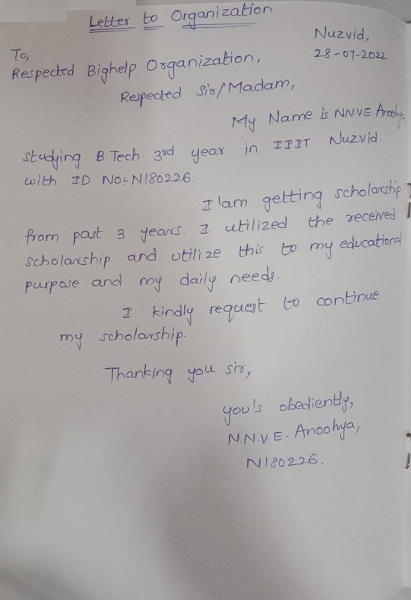 Letter to Organization
Nuzvid,
28-07-2022
To,
Respected Bighelp Organization,
Respected Sir/Madam,
My Name is N.N.V.E Anoohya
studying B Tech 3rd year in IIIT Nuzvid.
with ID No:- N180226.
I'am getting scholarship
from past 3 years. I utilized the received
scholarship and utilize this to my educational
purpose and my daily needs.
I kindly request to continue
my scholarship.
Thanking you sir,
you's obediently,
N.N.V.E. Anoohya,
N180226.